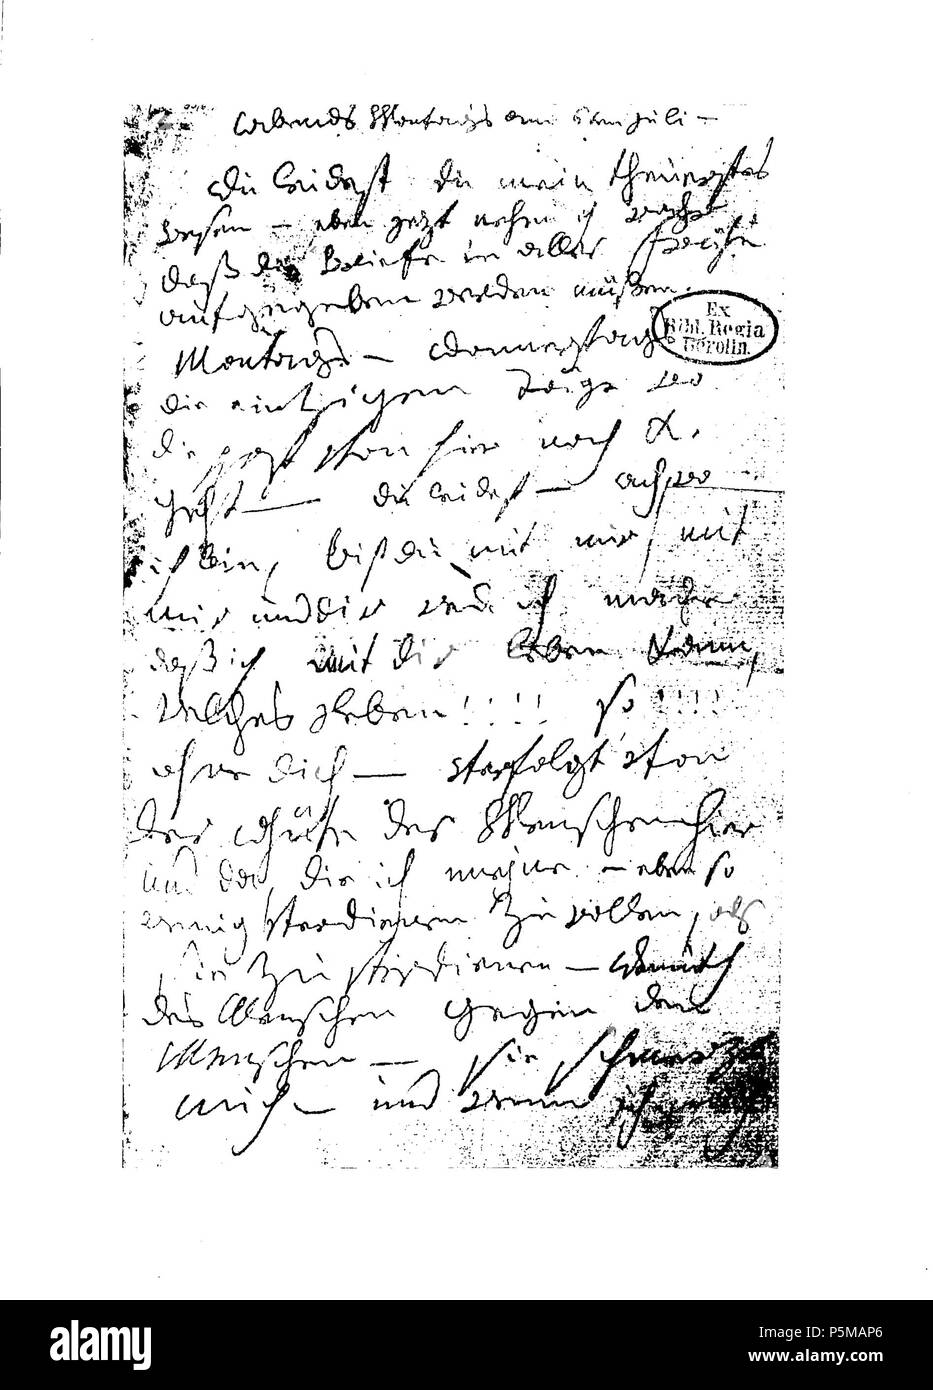 Abends Montags am 6ten juli –
Du leidest Du mein theuerstes
wesen – eben jezt nehme ich wahr
daß die Briefe in aller Frühe
aufgegeben werden müßen.
Montags – Donnerstags –
die eintzigen Täge wo
die post von hier nach K.
geht – du leidest – ach, wo
ich bin, bist du mit mir, mit
mir und dir
daß ich mit dir leben kann,
welches Leben!!!! so!!!!
ohne dich – Verfolgt von
der Güte der Menschen hier
und da, die ich meyne – eben so
wenig verdienen zu wollen, als
sie zu verdienen – Demuth
des Menschen gegen den
Menschen – sie schmerzt
mich – und wenn ich mich
Ex
Bibl. Regia
Berolin.
alamy
alamy
Image ID: P5MAP6
www.alamy.com